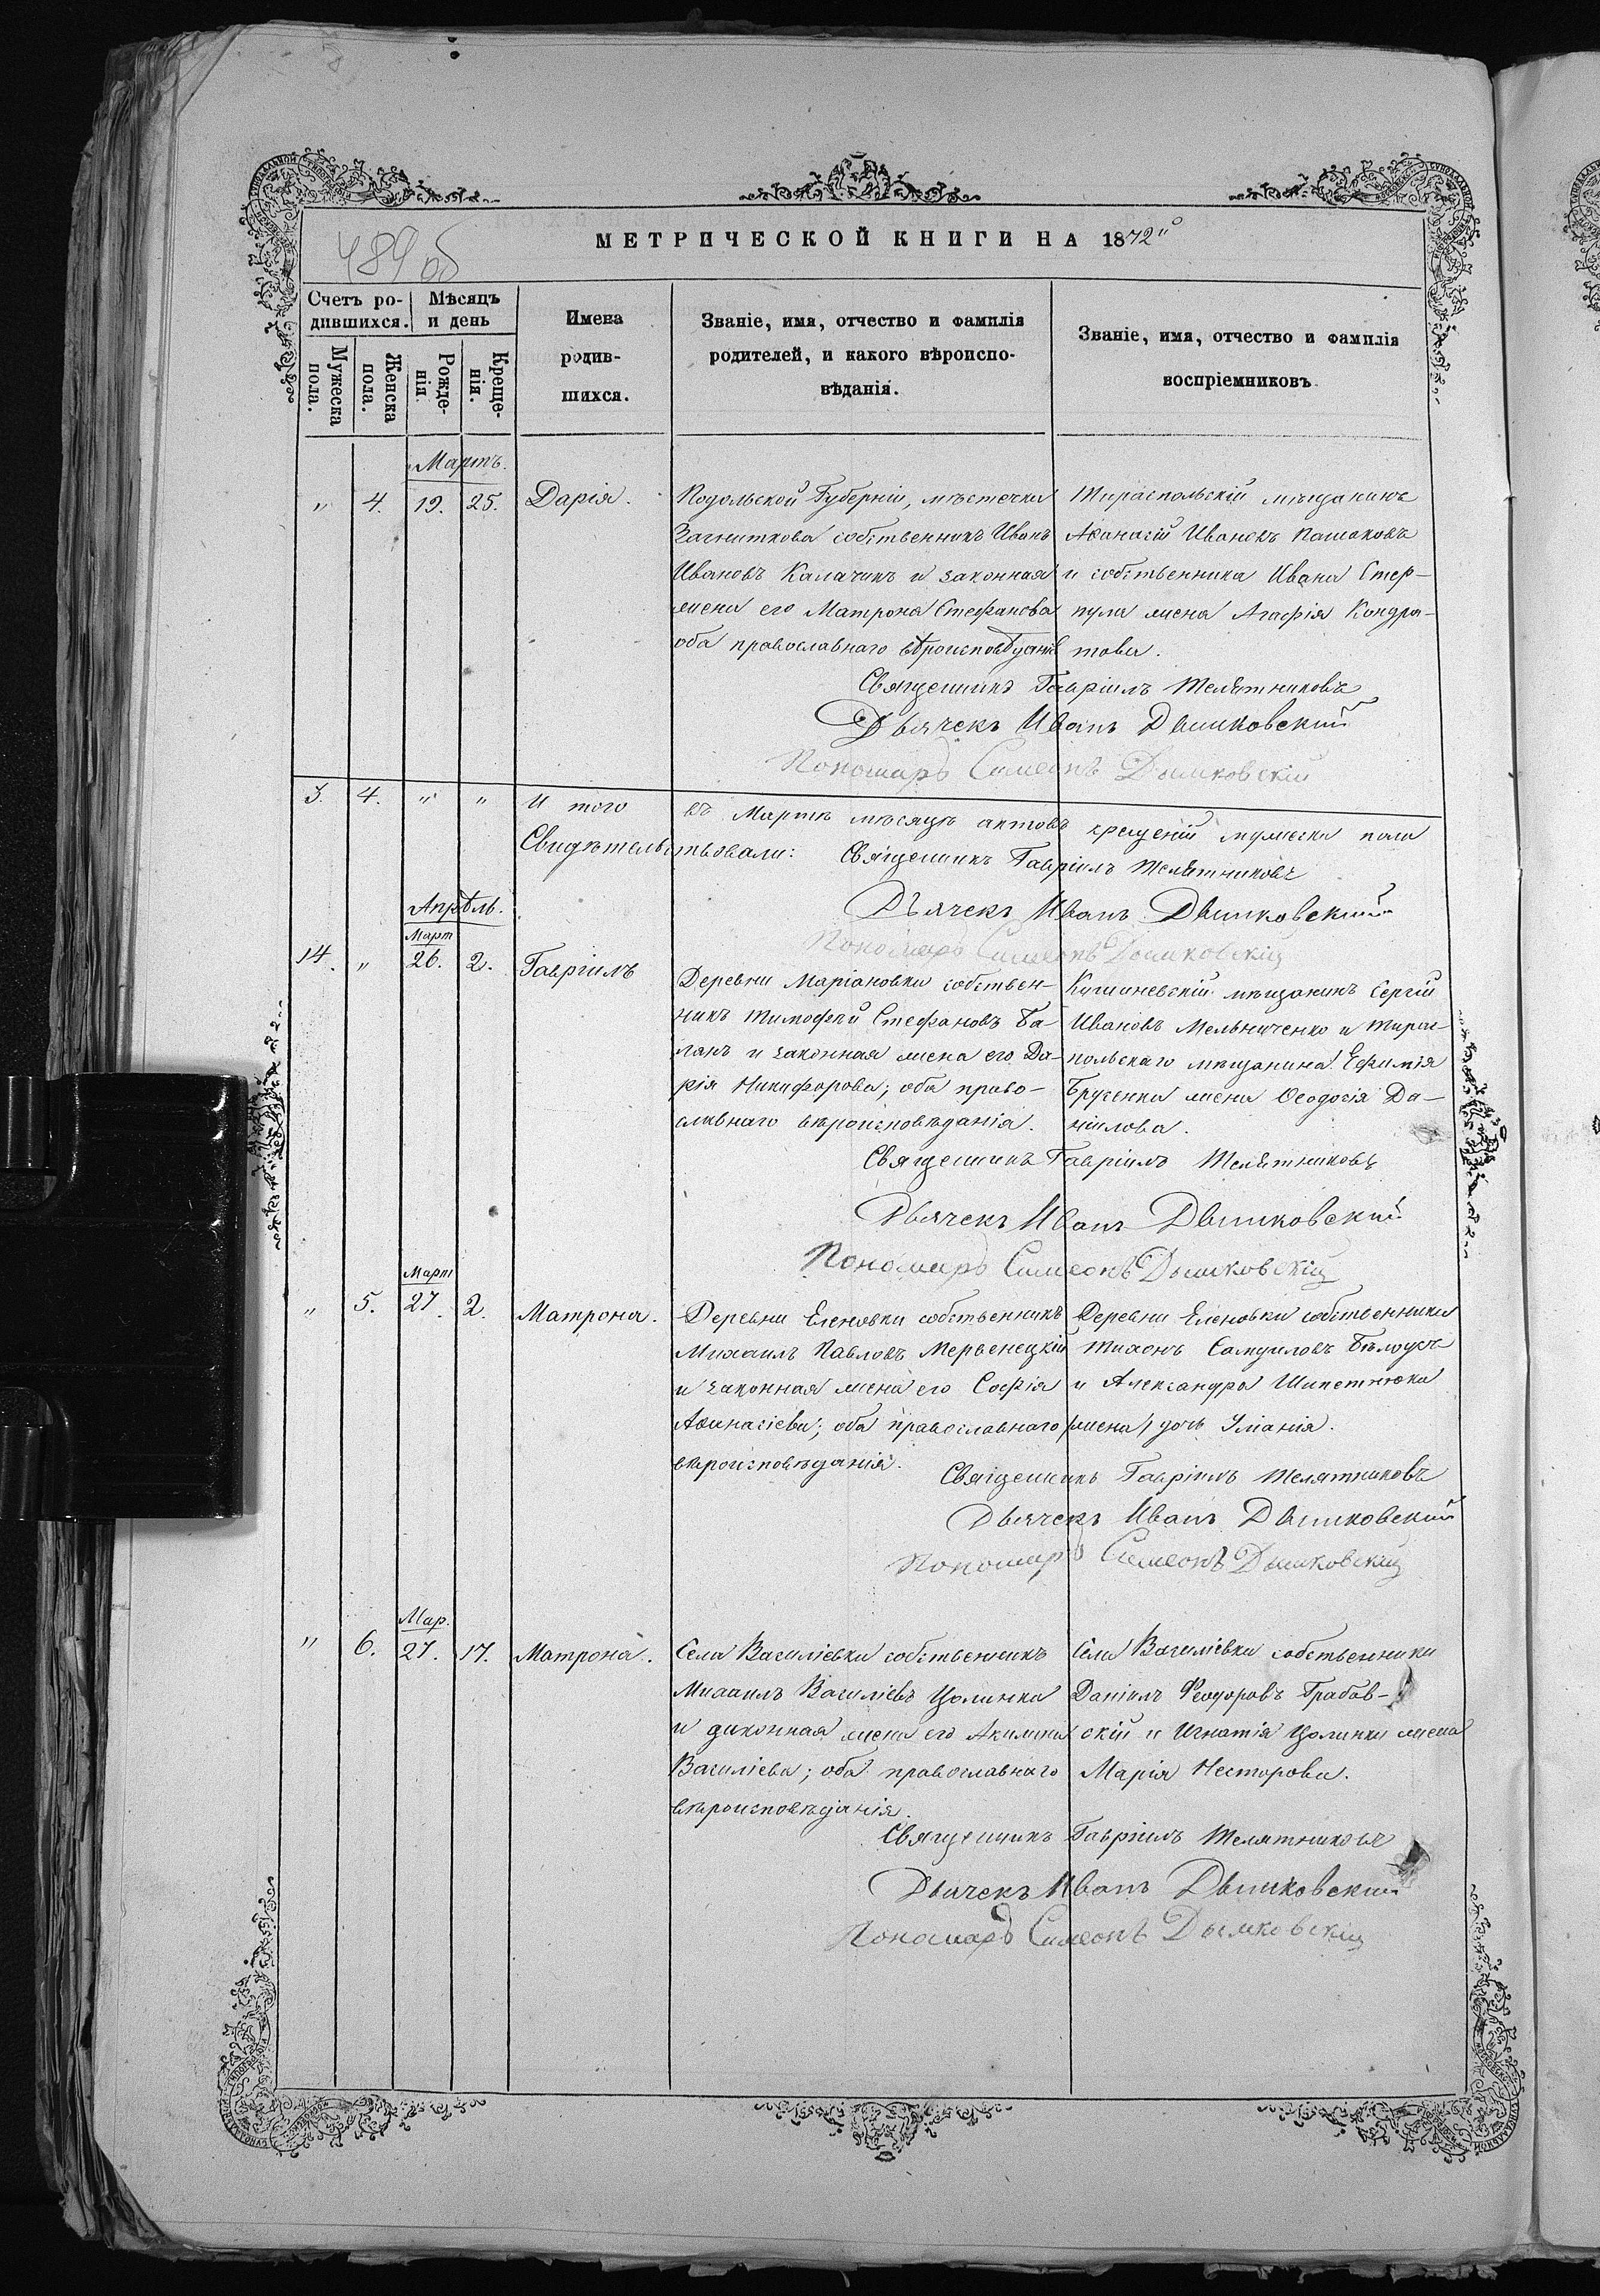 489 об
МЕТРИЧЕСКОЙ КНИГИ НА 1872й
Счетъ ро-
дившихся.
Мѣсяцъ
и день
Имена
родив-
шихся.
Званіе, имя, отчество и фамилія
родителей, и какого вѣроиспо-
вѣданія.
Званіе, имя, отчество и фамилія
воспріемниковъ.
Мужеска
пола.
Женска
пола.
Рожде-
нія.
Креще-
нія.
Мартъ.
" 4. 19. 25. Дарія.
Подольской Губерніи, мѣстечка
Загниткова собственникъ Иванъ
Ивановъ Калачикъ и законная
жена его Матрона Стефанова
оба православнаго вѣроисповѣданія
Тираспольскій мѣщанинъ
Аѳанасій Ивановъ
и собственника Ивана Стер-
пула жена Агафія Кондра-
това.
Священникъ Гавріилъ Телятниковъ
Дьячекъ Иванъ Дымковский
Пономарь Симеонъ Дымковскій
3. 4. " " И того въ Мартѣ мѣсяцѣ актовъ крещеній мужеска пола
Свидѣтельствовали: Священникъ Гавріилъ Телятниковъ
Дьячекъ Иванъ Дымковский
Пономарь Симеонъ Дымковскій
Апрѣль.
Март
14. " 26. 2. Гавріилъ
Деревни Маріановки собствен-
никъ Тимофѣй Стефановъ Ба-
ланъ и законная жена его Да-
рія Никифорова; оба право-
славнаго вѣроисповѣданія.
Кишиневскій мѣщанинъ Сергій
Ивановъ Мельниченко и Тирас-
польскаго мѣщанина Ефимія
жена Ѳеодосія Да-
нiилова.
Священникъ Гавріилъ Телятниковъ
Дьячекъ Иванъ Дымковский
Пономарь Симеонъ Дымковскій
Март
" 5. 27. 2. Матрона.
Деревни Еленовки собственникъ
Михаилъ Павловъ Мервенецкій
и законная жена его Софія
Аѳанасіева; оба православнаго
вѣроисповѣданія.
Деревни Еленовки собственники
Тихонъ Самуиловъ Бѣлоусъ
и Александра
(жена) дочь
Священникъ Гавріилъ Телятниковъ
Дьячекъ Иванъ Дымковский
Пономарь Симеонъ Дымковскій
Мар.
" 6. 27. 17. Матрона.
Села Василіевки собственникъ
Михаилъ Василіевъ Цолинка
и законная жена его Акилина
Василіева; оба православнаго
вѣроисповѣданія.
Села Василіевки собственники
Даніилъ Ѳеодоровъ Грабов-
скій и Игнатія Цолинки жена
Марія Несторова.
Священникъ Гавріилъ Телятниковъ
Дьячекъ Иванъ Дымковский
Пономарь Симеонъ Дымковскій